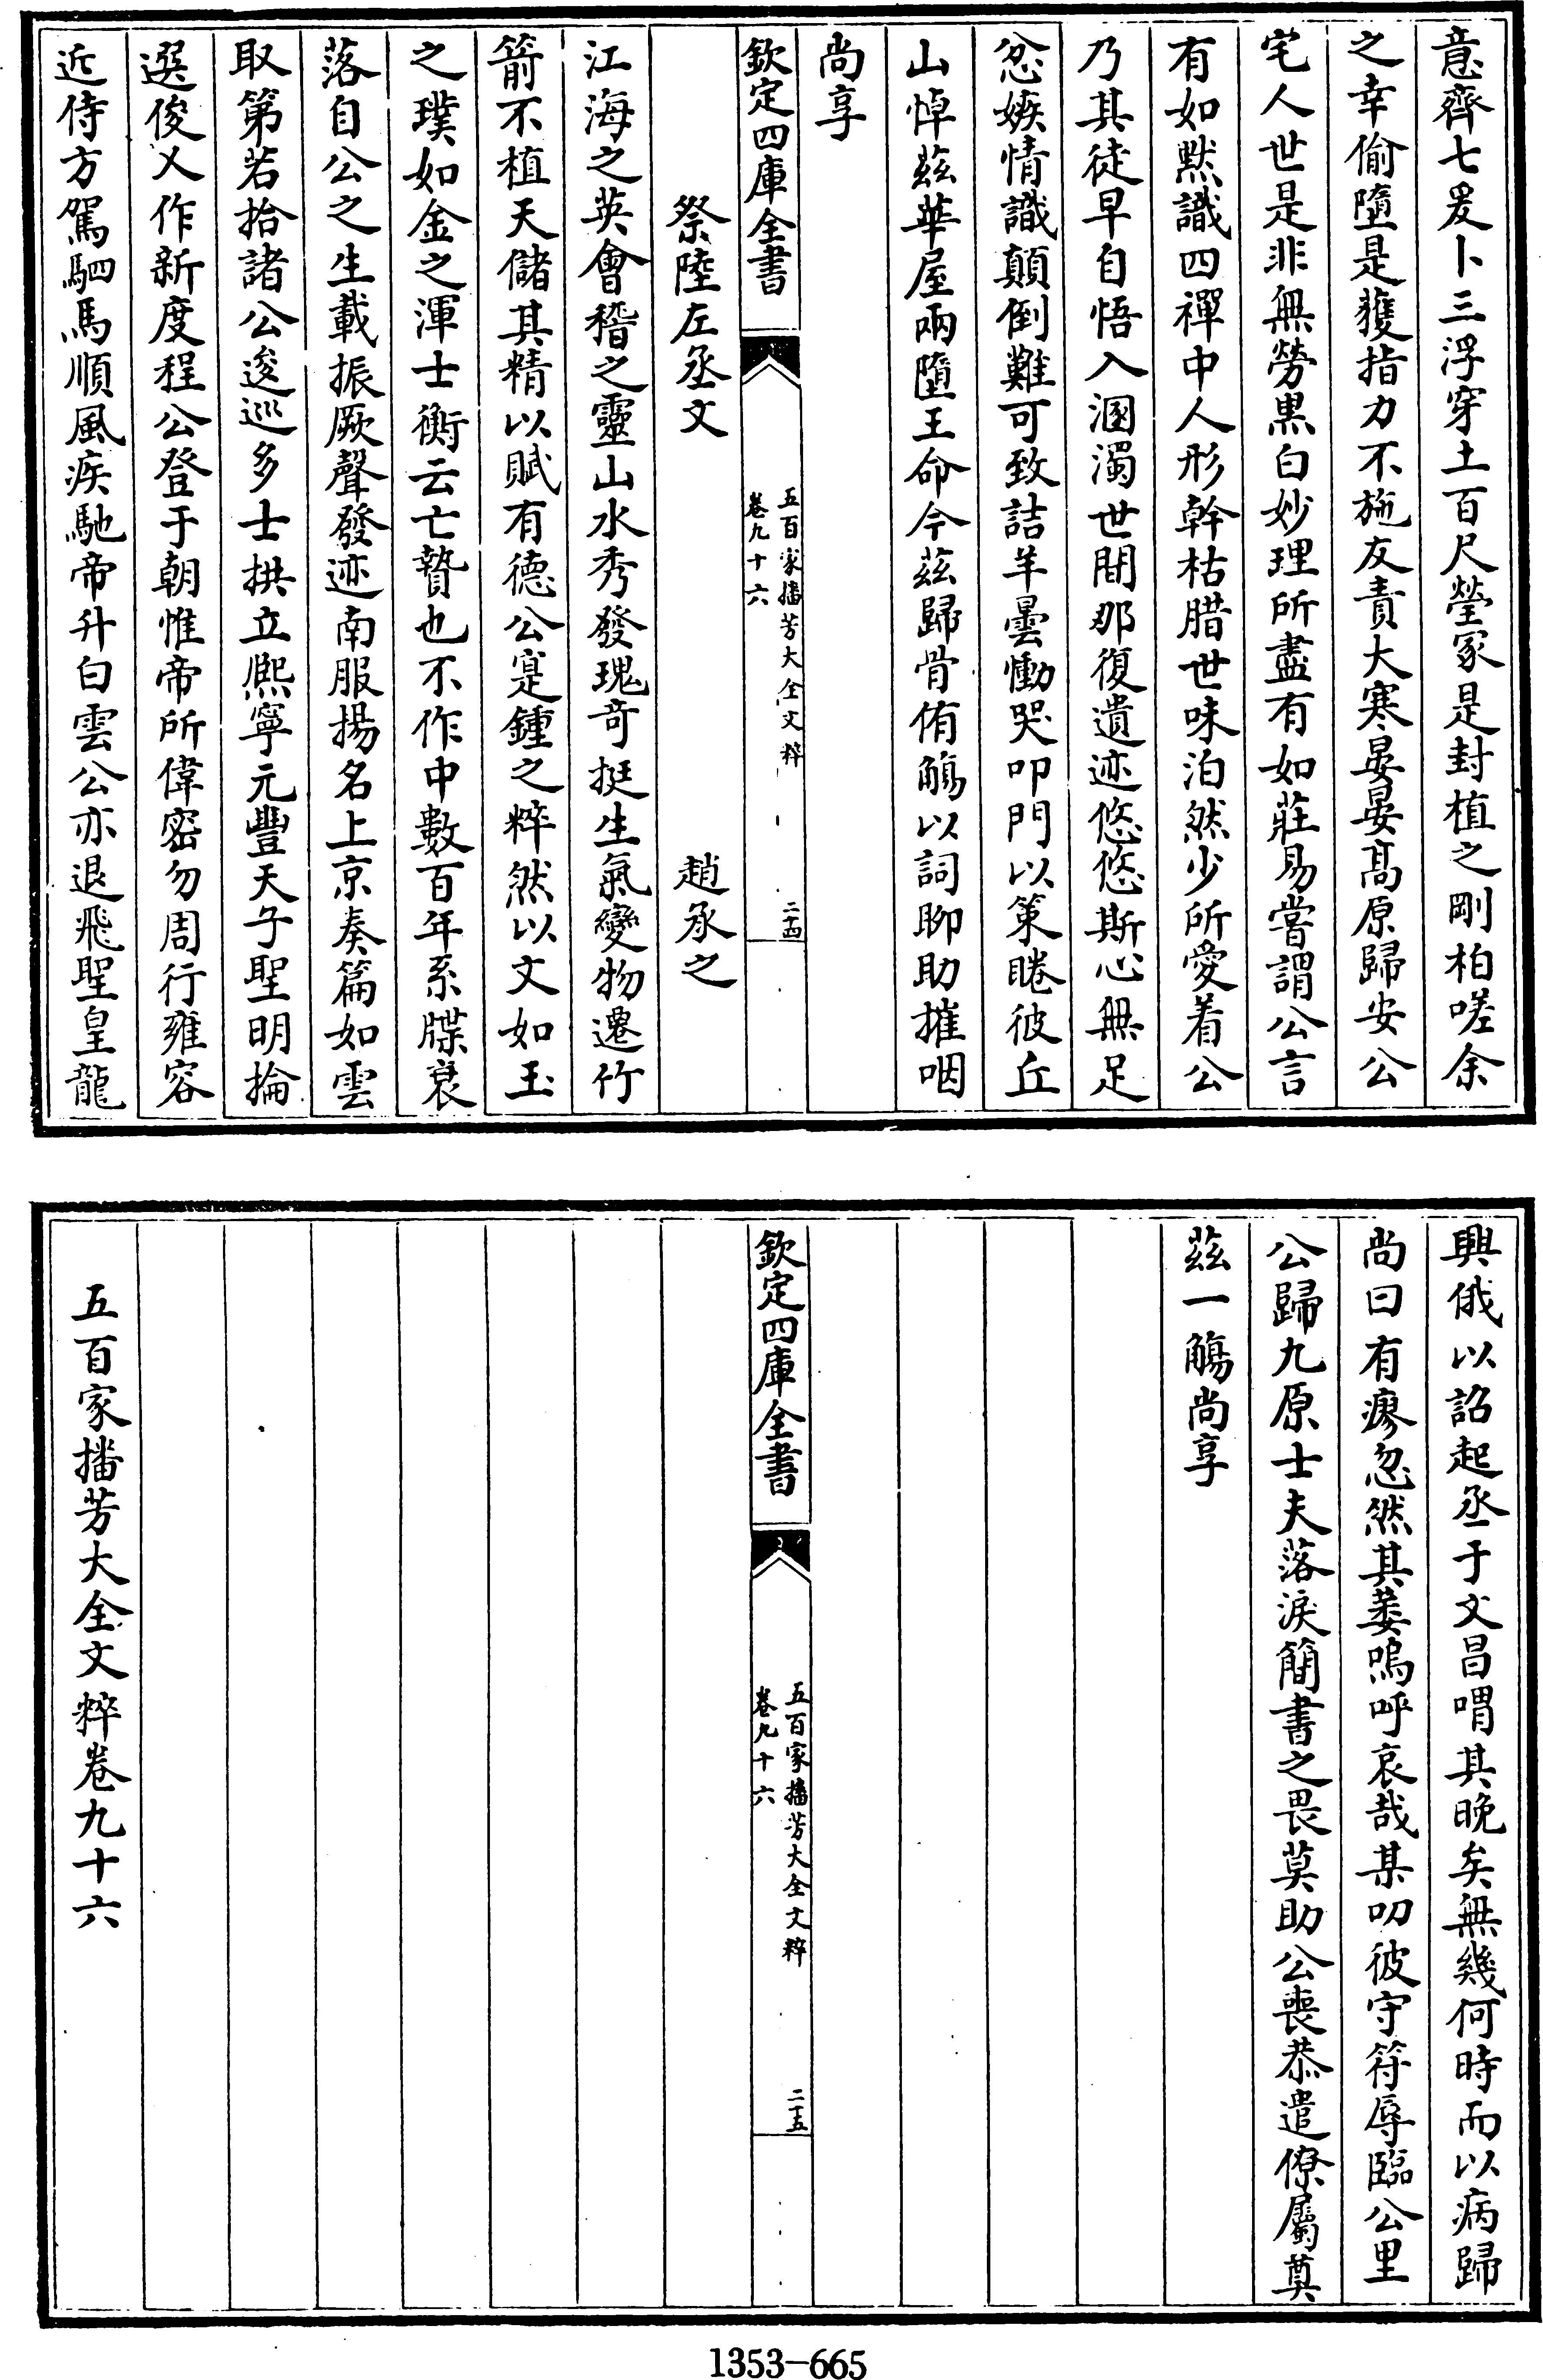 意齊七爰卜三浮穿土百尺瑩冢是封植之剛柏嗟余
之幸偷墮是蘉指力不施友責大寒晏晏髙原歸安公
宅人世是非無勞黒白妙理所盡有如莊易嘗謂公言
有如黙識四禪中人形幹枯腊世味泊然少所愛着公
乃其徒早自悟入溷濁世間那復遺迹悠悠斯心無足
忿嫉情識顛倒難可致詰羊曇慟哭叩門以䇿睠彼丘
山悼兹華屋兩墮王命今兹歸骨侑觴以詞聊助摧咽
尚享
欽定四庫全書
五百家播芳大全文粹
卷九十六
二十四
祭陸左丞文
趙承之
江海之英會稽之靈山水秀發瑰竒挺生氣變物遷竹
箭不植天儲其精以賦有德公寔鍾之粹然以文如玉
之璞如金之渾士衡云亡贄也不作中數百年系牒衰
落自公之生載振厥聲發迹南服揚名上京奏篇如雲
取第若拾諸公逡巡多士拱立熈寧元豐天子聖明掄
選俊乂作新度程公登于朝惟帝所偉宻勿周行雍容
近侍方駕駟馬順風疾馳帝升白雲公亦退飛聖皇龍
興俄以詔起丞于文昌喟其晚矣無幾何時而以病歸
尚曰有瘳忽然其萎嗚呼哀哉某叨彼守符辱臨公里
公歸九原士夫落淚簡書之畏莫助公喪恭遣僚屬奠
兹一觴尚享
欽定四庫全書
五百家播芳大全文粹
卷九十六
二十五
五百家播芳大全文粹卷九十六
1353-665